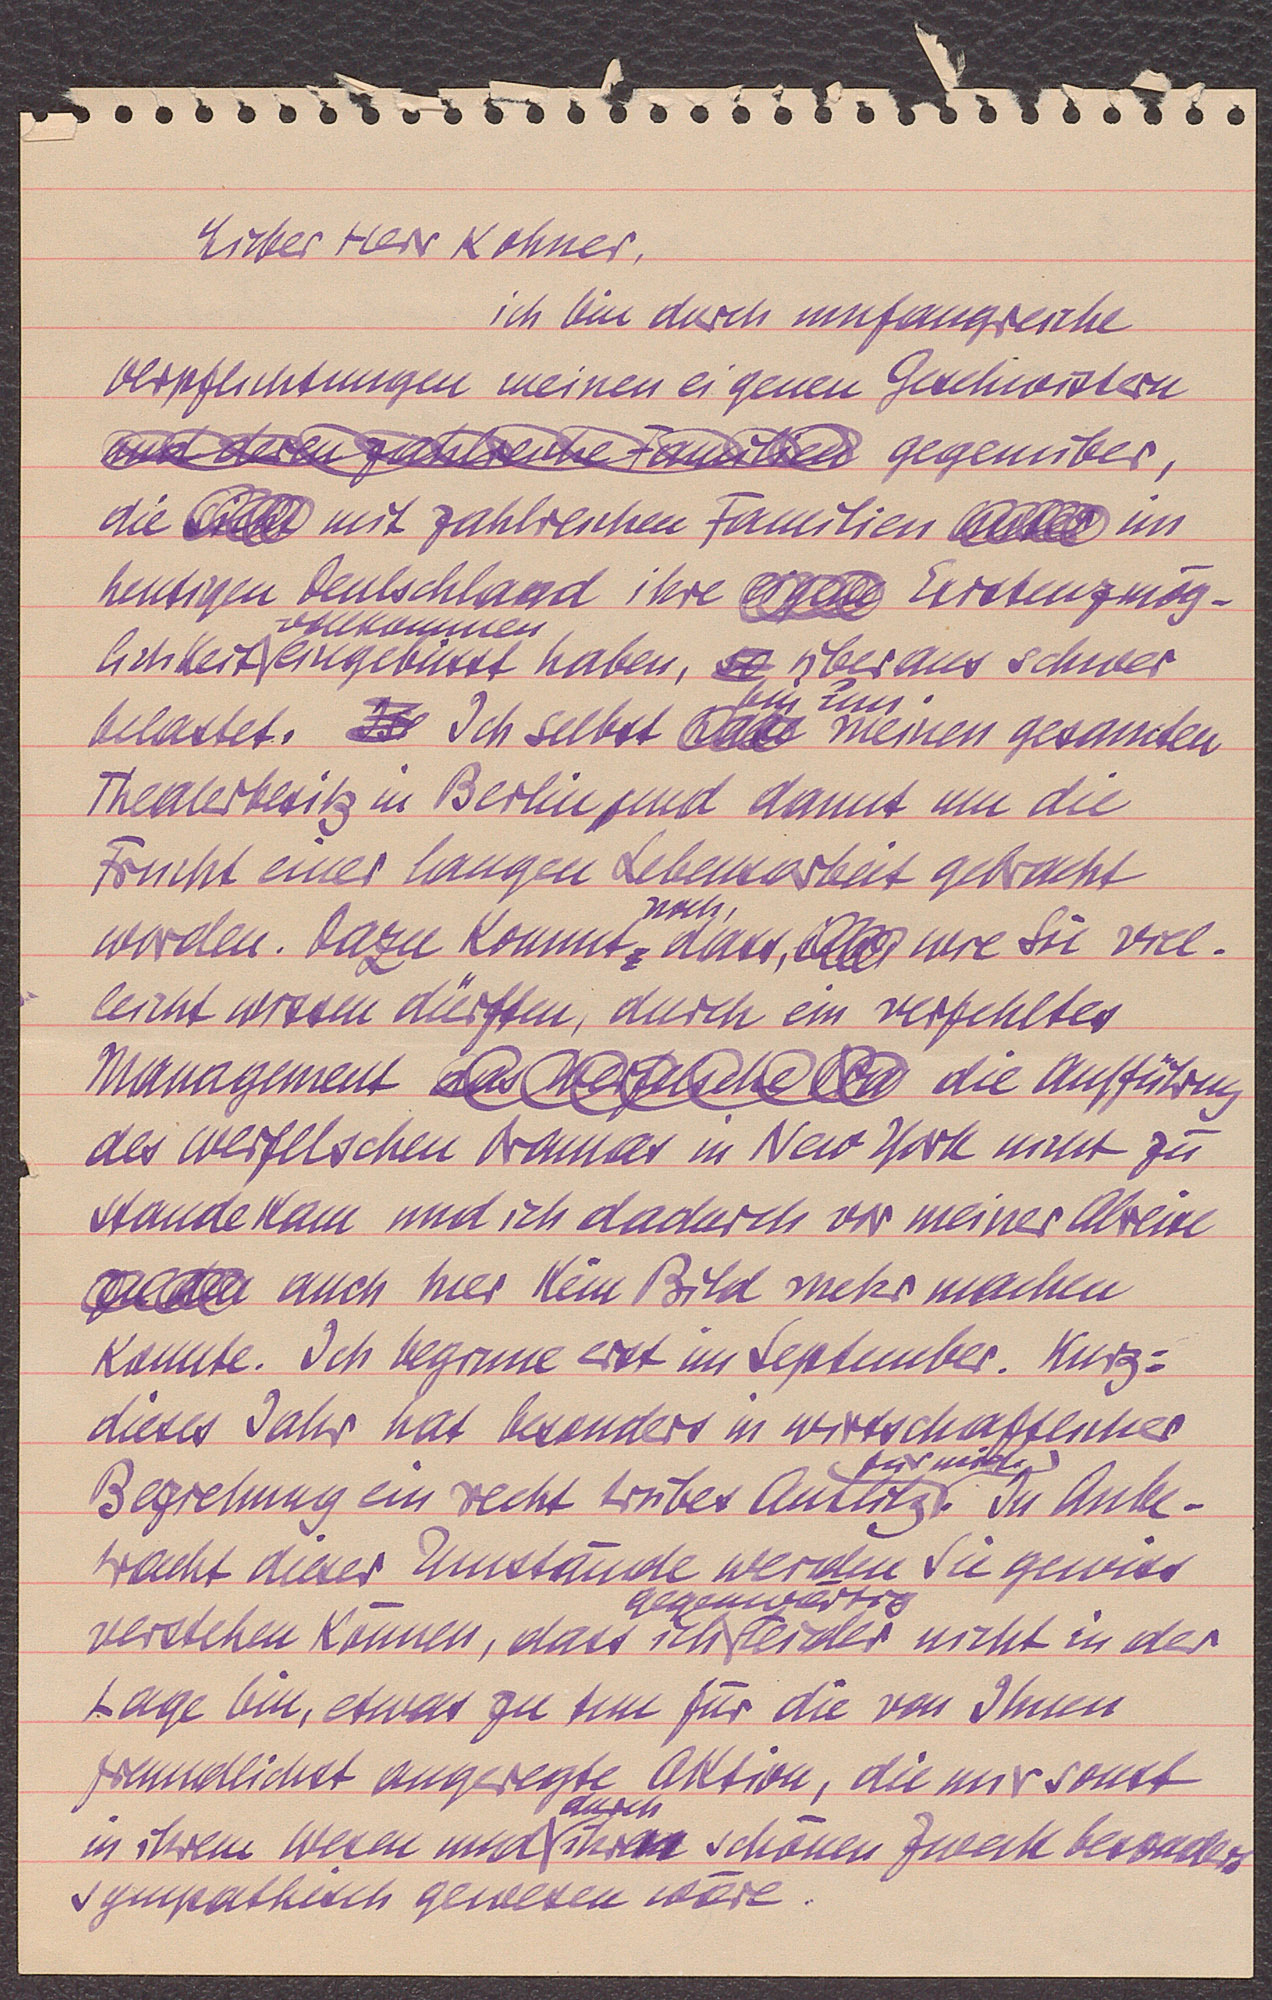 Lieber Herr Kohner,
ich bin durch umfangreiche
Verpflichtungen meinen eigenen Geschwistern
und deren zahlreiche Familien gegenüber,
die mit zahlreichen Familien im
heutigen Deutschland ihre eigene Existenzmög-
vollkommen
lichkeit eingebüsst haben, so überaus schwer
bin um
belastet. Ich Ich selbst habe meinen gesamten
Theaterbesitz in Berlin und damit um die
Frucht einer langen Lebensarbeit gebracht
noch,
worden. Dazu kommt, dass, wie Sie viel-
leicht wissen dürften, durch ein verfehltes
Management das Werfelsche Dra die Aufführung
des Werfelschen Dramas in New York nicht zu
stande kam und ich dadurch vor meiner Abreise
auch hier kein Bild mehr machen
konnte. Ich beginne erst im September. Kurz=
dieses Jahr hat besonders in wirtschaftlicher
für mich
Beziehung ein recht trübes Antlitz. In Anbe-
tracht dieser Umstände werden Sie gewiss
gegenwärtig
verstehen können, dass ich leider nicht in der
Lage bin, etwas zu tun für die von Ihnen
freundlichst angeregte Aktion, die mir sonst
durch
in ihrem Wesen und ihren schönen Zweck besonders
sympathisch gewesen wäre.